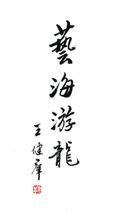 藝海游龍
王健羣